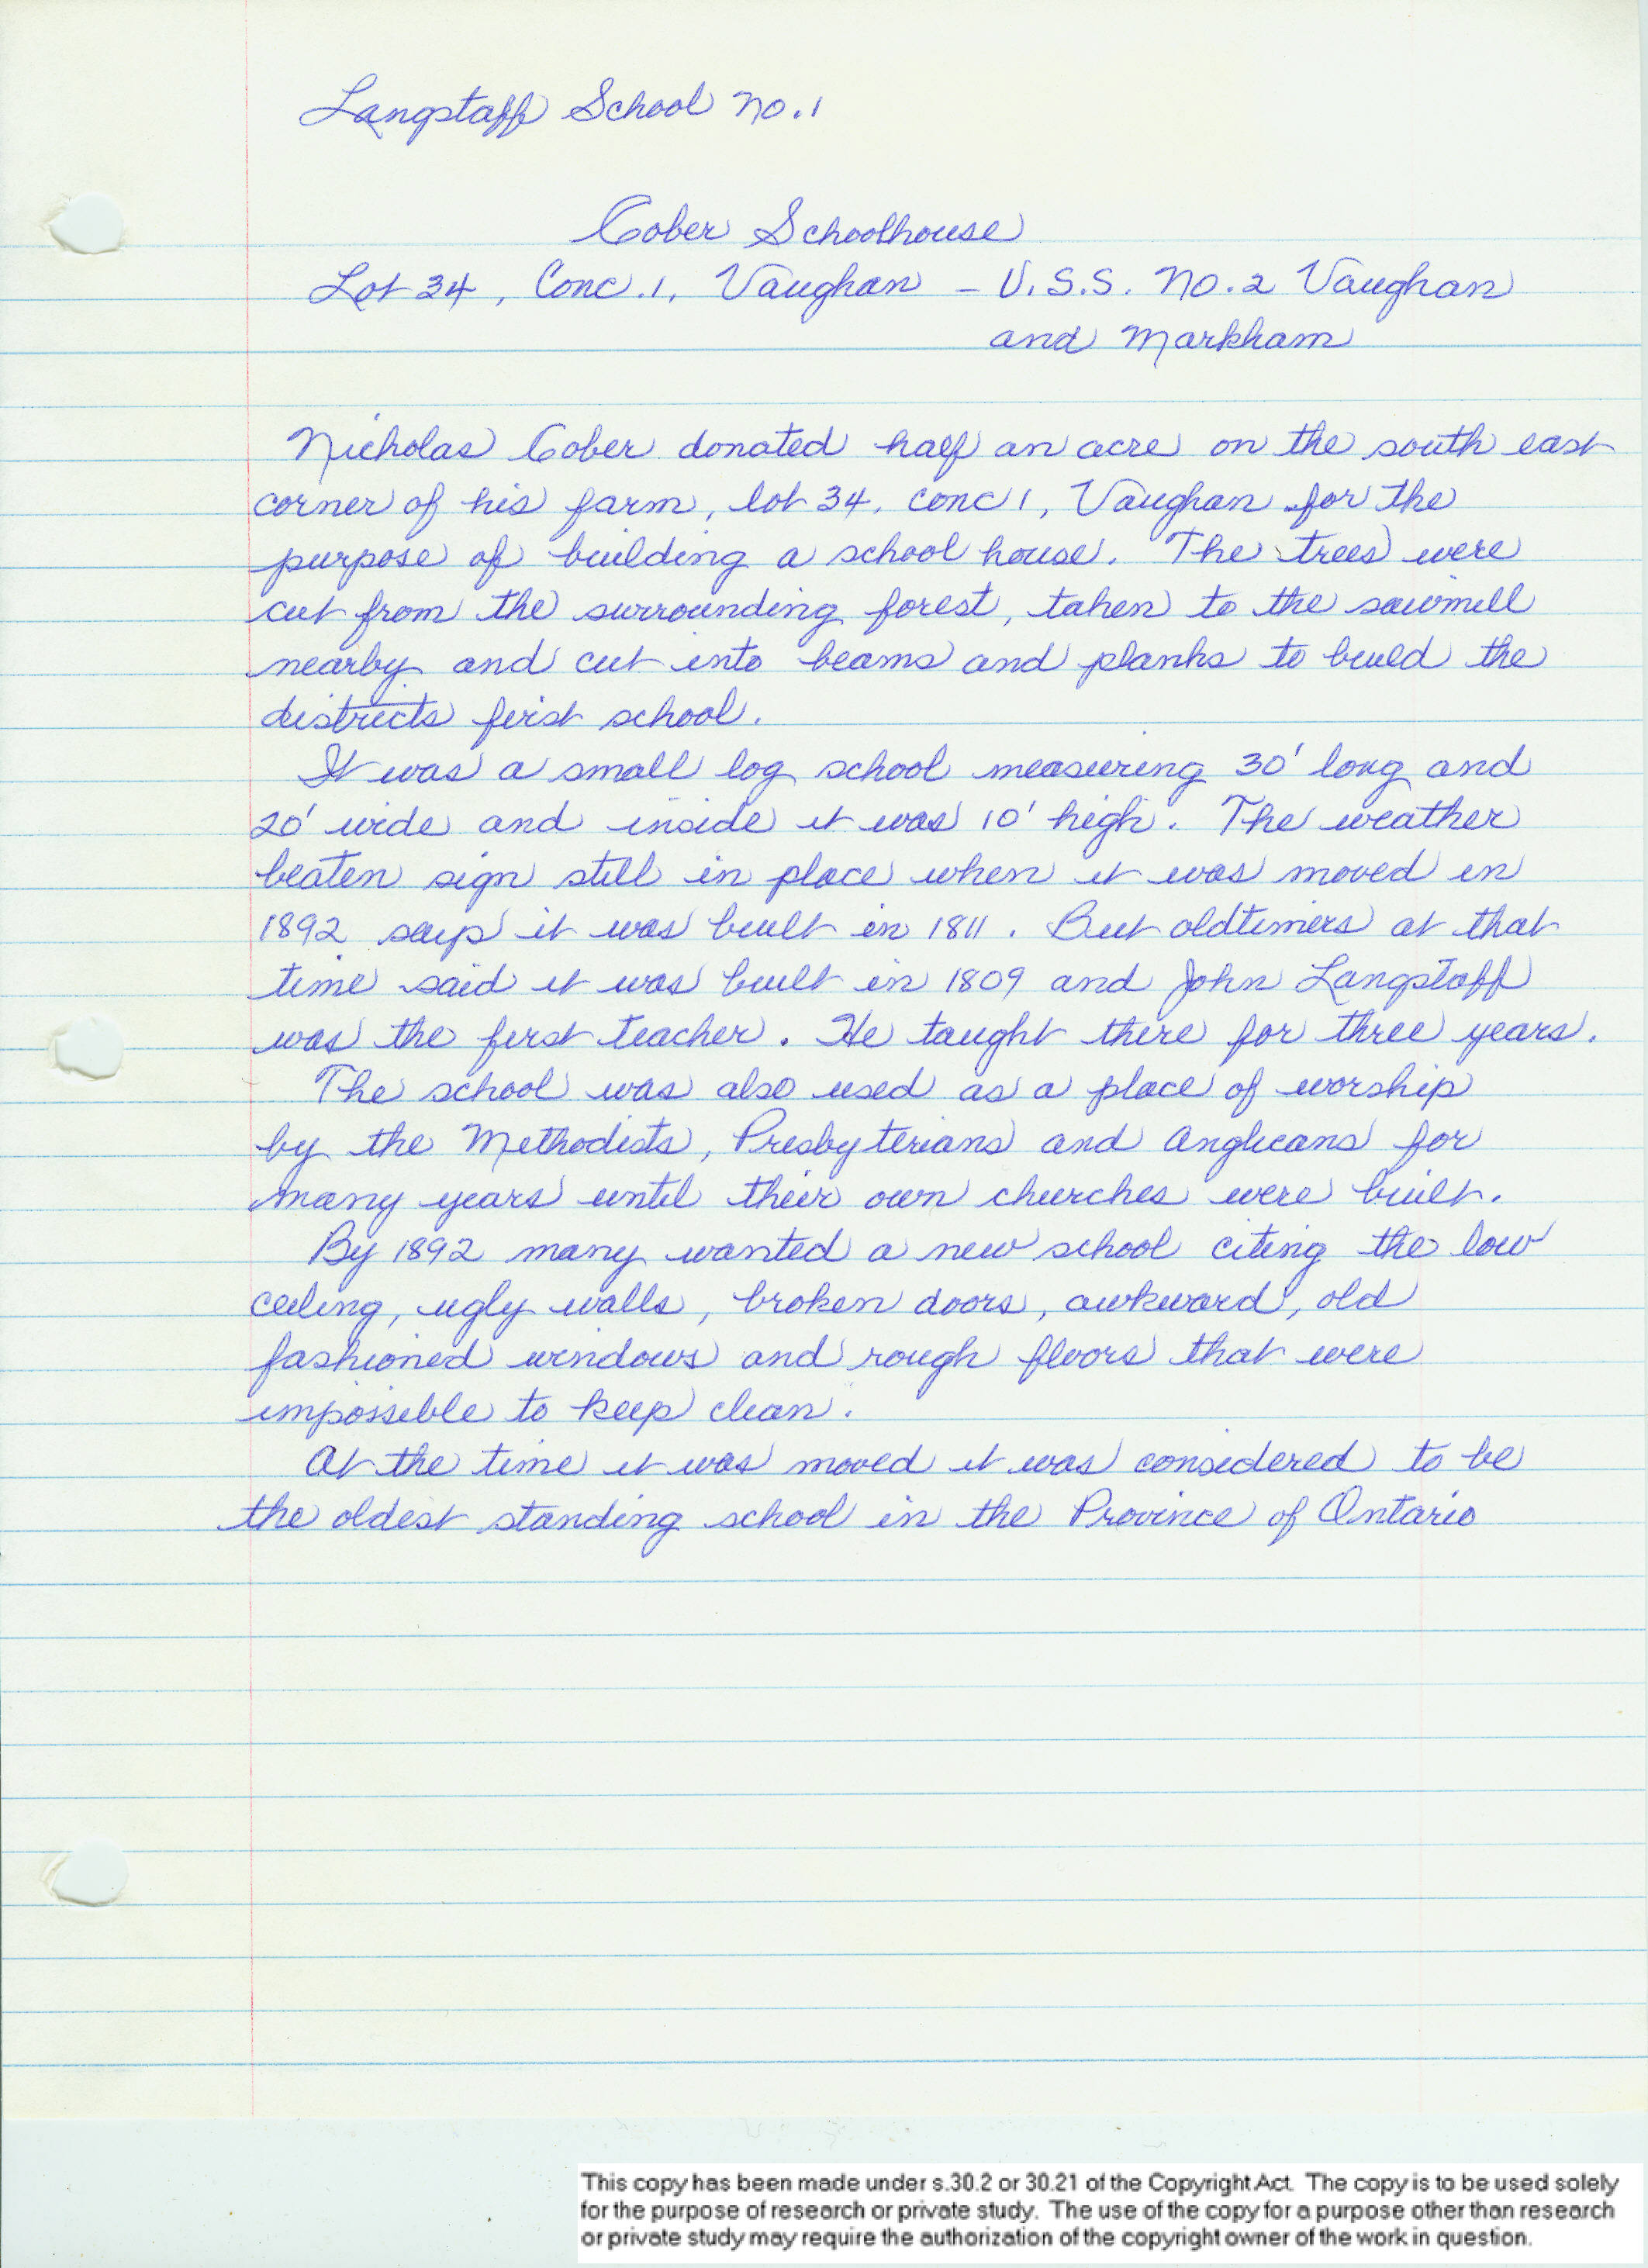 Langstaff School No. 1
Cober Schoolhouse
Lot 34, Conc. 1, Vaughan - U.S.S. No. 2 Vaughan
and Markham
Nicholas Cober donated half an acre on the south east
corner of his farm, lot 34, conc 1, Vaughan for the
purpose of building a school house. The trees were
cut from the surrounding forest, taken to the sawmill
nearby and cut into beams and planks to build the
districts first school.
It was a small log school measuring 30' long and
20' wide and inside it was 10' high. The weather
beaten sign still in place when it was moved in
1892 says it was built in 1811. But oldtimers at that
time said it was built in 1809 and John Langstaff
was the first teacher. He taught there for three years.
The school was also used as a place of worship
by the Methodists, Presbyterians and Anglicans for
many years until their own churches were built.
By 1892 many wanted a new school citing the low
ceiling, ugly walls, broken doors, awkward, old
fashioned windows and rough floors that were
impossible to keep clean.
At the time it was moved it was considered to be
the oldest standing school in the Province of Ontario
This copy has been made under s.30.2 or 30.21 of the Copyright Act. The copy is to be used solely
for the purpose of research or private study. The use of the copy for a purpose other than research
or private study may require the authorization of the copyright owner of the work in question.